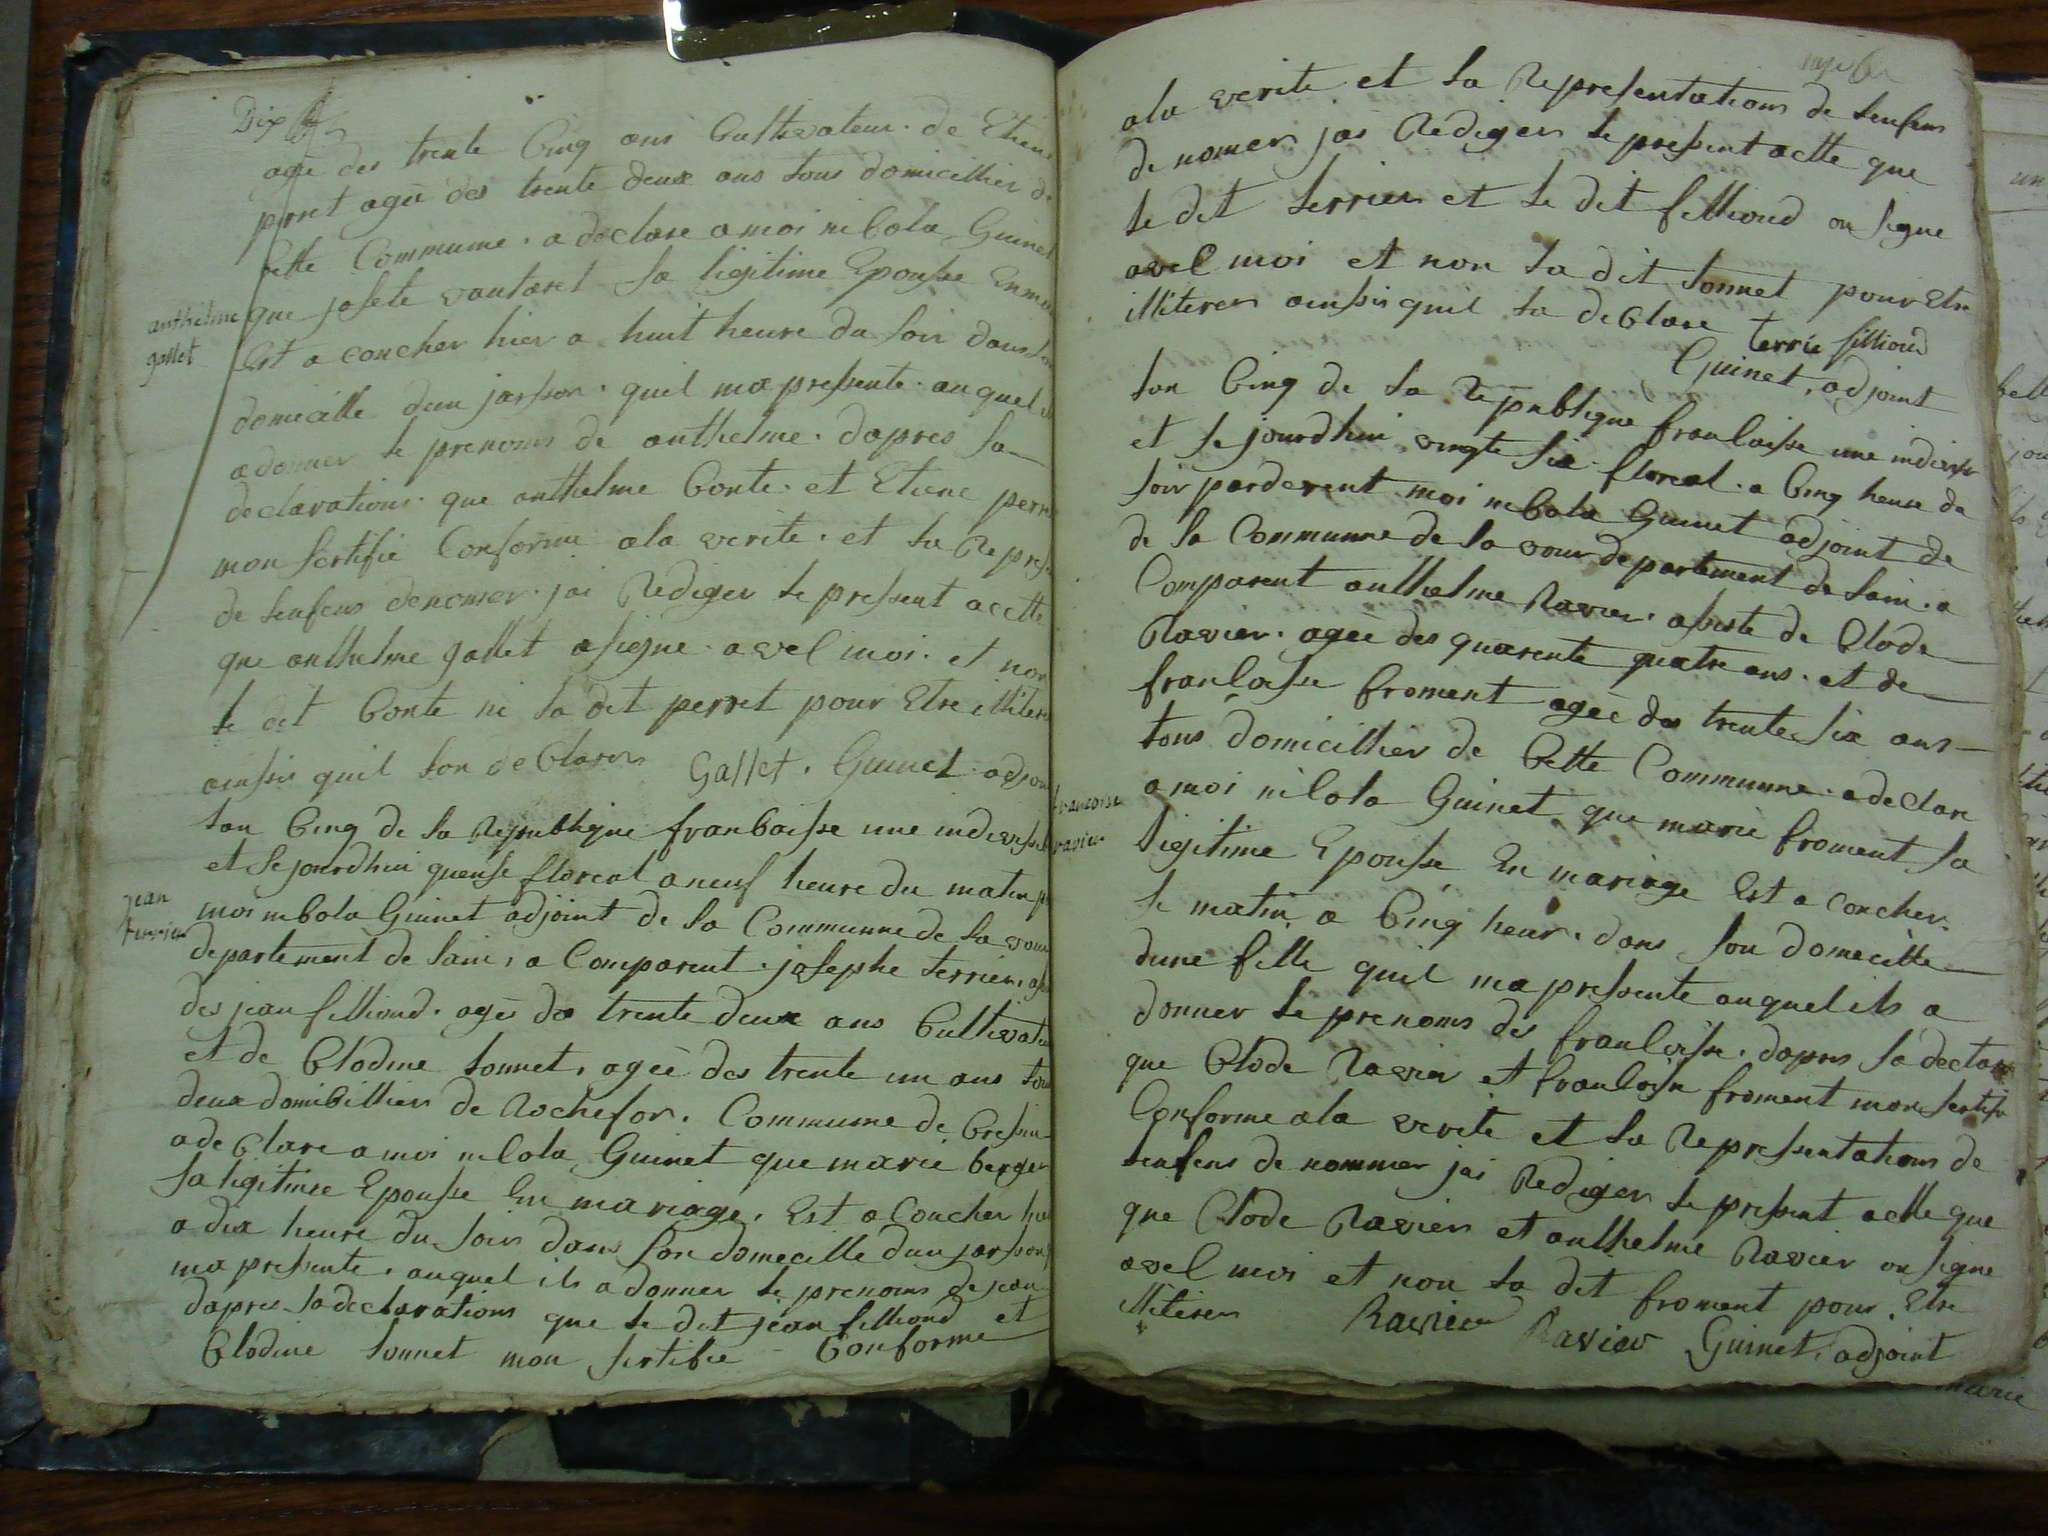 Dix
agé des trente Cinq ans Cultivateur. de Etiene
perret ageé des trente deux ans tous domicillier de
Cette Commune. a declare a moi nicola Guinet
que josete vautaret sa ligitime Epousse En
anthelme
gallet
Est a coucher hier a huit heure du soir dans
domicille dun jarsson. quil ma pressente. auquel il
a donner le prenoms de anthelme. dapres sa
declarations. que anthelme Conte. et Etiene perret
mon sertifié Conforme ala verite. et la Repres
de lenfens denomer. jai Rediger le pressent actte
que anthelme gallet a signe. avec moi. et non
le dit Conte ni la dit perret pour Etre illiteré
ainssis quil lon declarer Gallet. Guinet adjoint
lan Cinq de la Republique francaisse une indivissible
et Sejourdhui quense floreal a neuf heure du matin
jean
terrier
moi nicola Guinet adjoint de la Communne de la vour
departement de lain, a Comparent. josephe terrier,
des jean fillioud. agés des trente deux ans Cultivateur
et de Clodine tonnet, ageé des trente un ans tous
deux domicillier de Rochefor. Communne de Cressin
a declare a moi nicola Guinet que marie berger
sa ligitime Epousse En mariage. Est a Coucher hier
a dix heure du soir dans son domecille dun jarsson
ma pressente. auquel ils a donner le prenoms de jean
dapres sa declarations que le dit jean fillioud et
Clodine tonnet mon sertifie Conforme
ala verite et la Representations de lenfens
de nomer jai Rediger le pressent actte que
le dit terrier et le dit fillioud on signe
avec moi et non la dit tonnet pour Etre
illiterer ainssis quil la declare terrie fillioud
Guinet, adjoint
lan Cinq de la Republique francaisse une indivissi
et le jourdhui vingte six floreal. a Cinq heure du
soir parderent moi nicola Guinet adjoint de
de la Communne de la vour departement de lain. a
Comparent anthelme Ravier. assiste de Clode
Ravier. ageé des quarente quatre ans. et de
francoisse froment ageé des trente six ans
tous domicillier de Cette Communne. a declare
francoise
ravier
a moi nicola Guinet que marie froment sa
ligitime Epousse En mariage Est a coucher.
le matin a Cinq heur. dans son domecille
dune fille quil ma pressente auquel ils a
donner le prenoms des francoisse. dapres sa declara
que Clode Ravier et francoisse froment mon sertifie
Conforme ala verite et la Representations de
lenfens de nommer jai Rediger le pressent actte que
que Clode Ravier et anthelme Ravier on signe
avec moi et non la dit froment pour Etre
illiterer Ravier Ravier Guinet, adjoint
marie